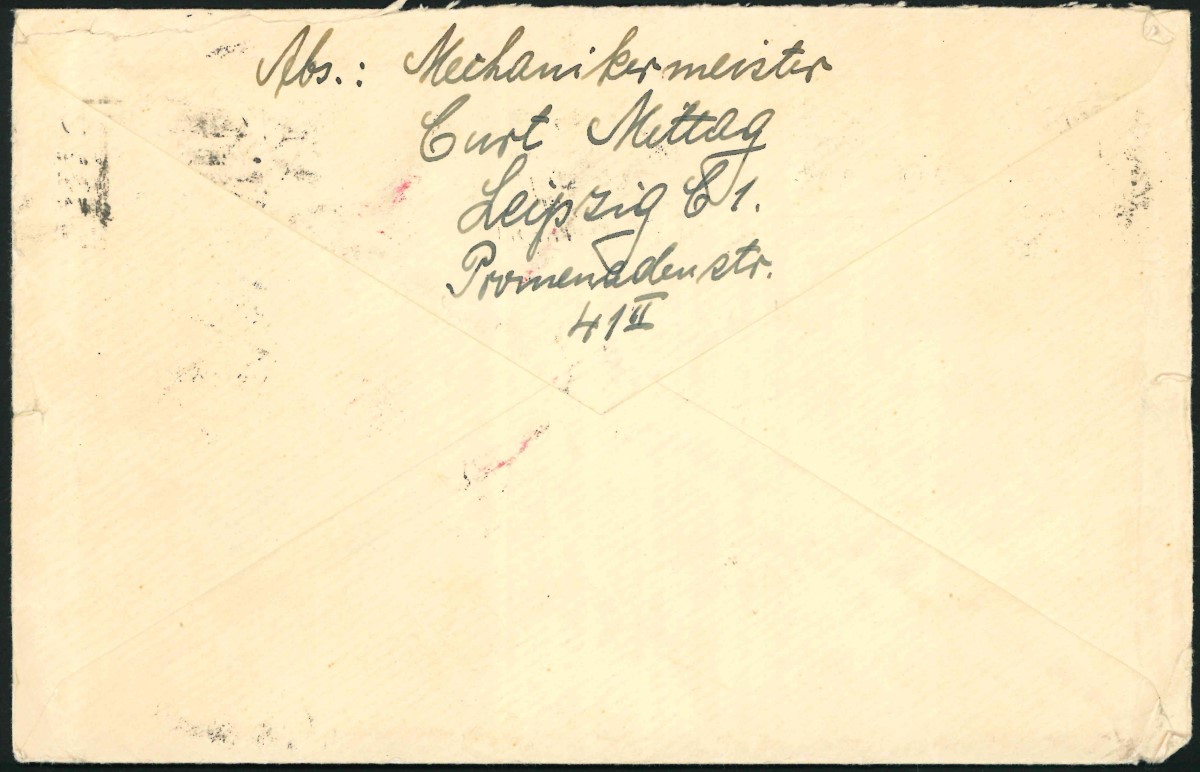 Abs.: Mechanikermeister
Curt Mittag
Leipzig C 1.
Promenadenstr.
41 II